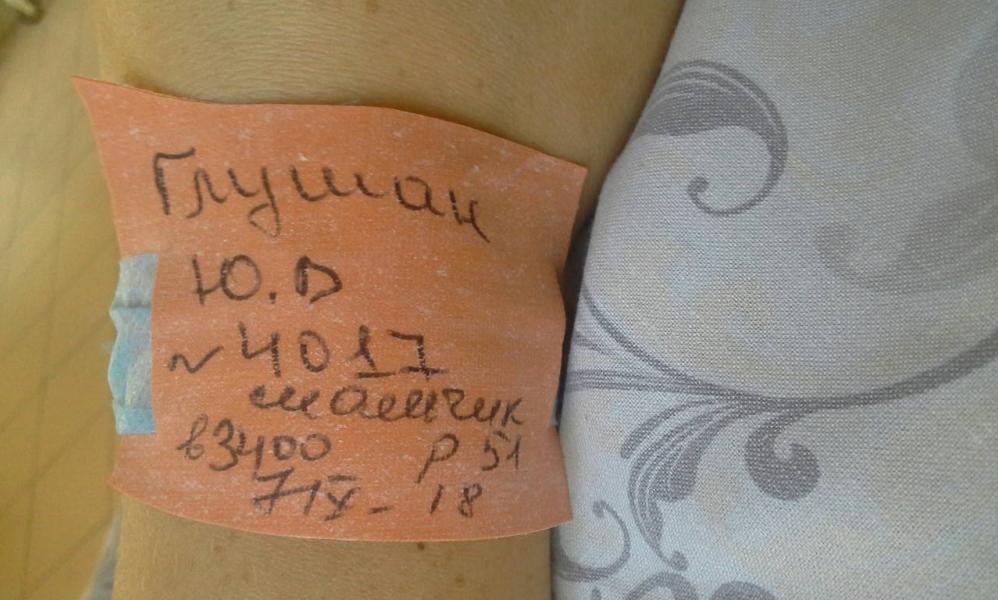 Глушак
Ю.В
~4017
мальчик
в3400 р 51
7 IX - 18